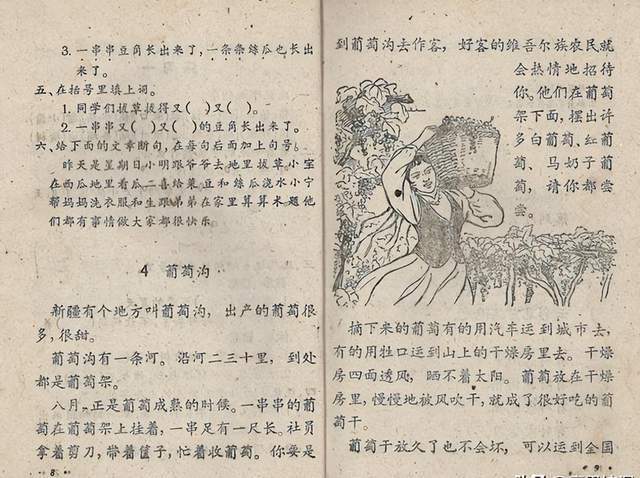 3. 一串串豆角长出来了，一条条丝瓜也长出
来了。
五、在括号里填上词。
1. 同学们拔草拔得又( )又( )。
2. 一串串又( )又( )的豆角长出来了。
六、给下面的文章断句，在每句后面加上句号。
昨天是星期日小明跟爷爷去地里拔草小宝
在西瓜地里看瓜二喜给菜豆和丝瓜浇水小宁
帮妈妈洗衣服和生跟弟弟在家里算算术题他
们都有事情做大家都很快乐
4 葡萄沟
新疆有个地方叫葡萄沟，出产的葡萄很
多，很甜。
葡萄沟有一条河。沿河二三十里，到处
都是葡萄架。
八月，正是葡萄成熟的时候。一串串的葡
萄在葡萄架上挂着，一串足有一尺长。社员
拿着剪刀，带着筐子，忙着收葡萄。你要是
·8·
到葡萄沟去作客，好客的维吾尔族农民就
会热情地招待
你。他们在葡萄
架下面，摆出许
多白葡萄、红葡
萄、马奶子葡
萄，请你都尝
尝。
摘下来的葡萄有的用汽车运到城市去，
有的用牲口运到山上的干燥房里去。干燥
房四面透风，晒不着太阳。葡萄放在干燥
房里，慢慢地被风吹干，就成了很好吃的葡
萄干。
葡萄干放久了也不会坏，可以运到全国